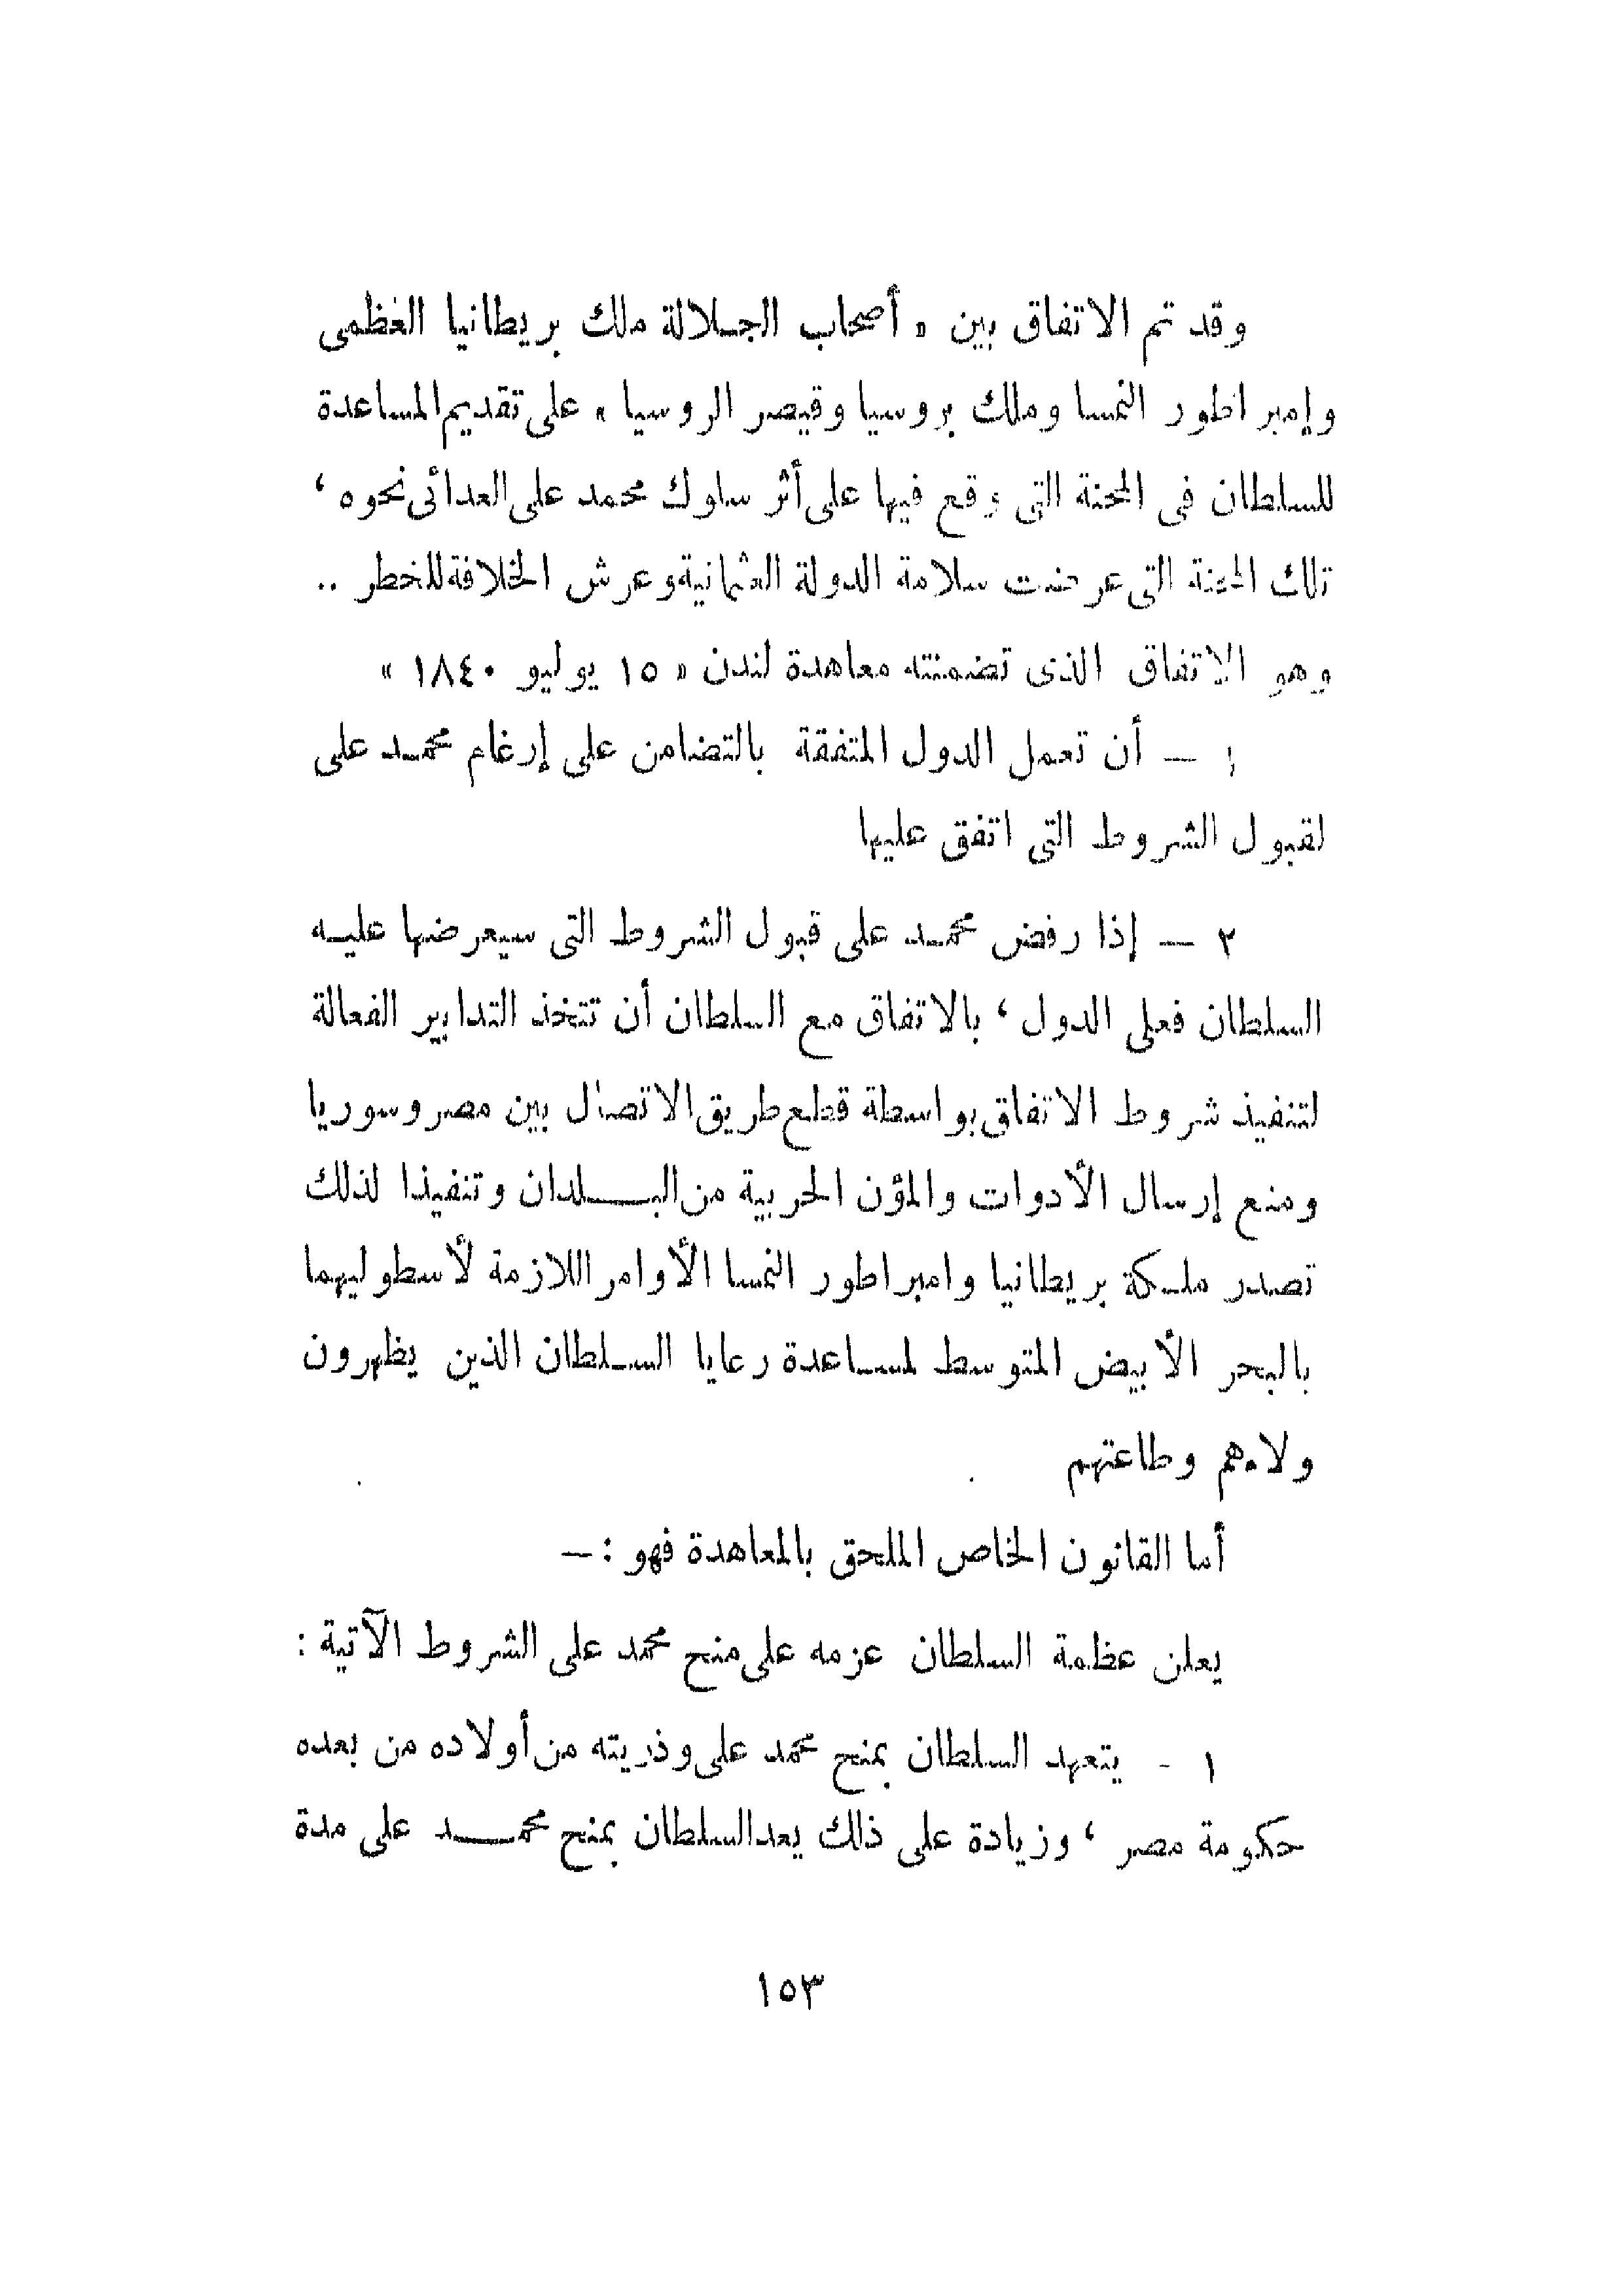 وقد تم الاتفاق بين « أصحاب الجلالة ملك بريطانيا العظمى
وإمبراطور النمسا وملك بروسيا وقيصر الروسيا » على تقديم المساعدة
للسلطان فى المحنة التى وقع فيها على أثر سلوك محمد على العدائى نحوه ،
تلك المحنة التى عرضت سلامة الدولة العثمانية وعرش الخلافة للخطر ..
وهو الاتفاق الذى تضمنته معاهدة لندن « ١٥ يوليو ١٨٤٠ »
١ — أن تعمل الدول المتفقة بالتضامن على إرغام محمد على
لقبول الشروط التى اتفق عليها
٢ — إذا رفض محمد على قبول الشروط التى سيعرضها عليه
السلطان فعلى الدول ، بالاتفاق مع السلطان أن تتخذ التدابير الفعالة
لتنفيذ شروط الاتفاق بواسطة قطع طريق الاتصال بين مصر وسوريا
ومنع إرسال الأدوات والمؤن الحربية من البلدان وتنفيذا لذلك
تصدر ملكة بريطانيا وامبراطور النمسا الأوامر اللازمة لأسطوليهما
بالبحر الأبيض المتوسط لمساعدة رعايا السلطان الذين يظهرون
ولاءهم وطاعتهم
أما القانون الخاص الملحق بالمعاهدة فهو : —
يعلن عظمة السلطان عزمه على منح محمد على الشروط الآتية :
١ - يتعهد السلطان بمنح محمد على وذريته من أولاده من بعده
حكومة مصر ، وزيادة على ذلك يعد السلطان بمنح محمد على مدة
١٥٣